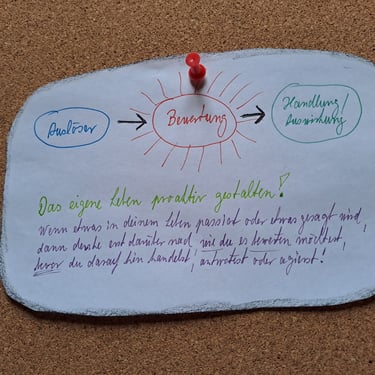 Auslöser → Bewertung → Handlung/
Auswirkung
Das eigene Leben proaktiv gestalten!
Wenn etwas in deinem Leben passiert oder etwas gesagt wird,
dann denke erst darüber nach, wie du es bewerten möchtest,
bevor du daraufhin handelst, antwortest oder agierst!